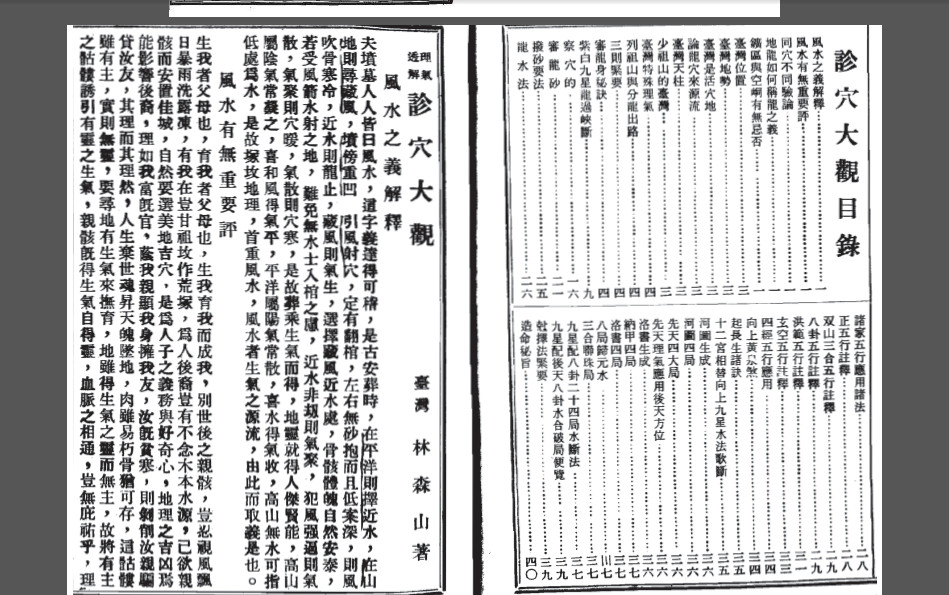 診穴大觀目錄
風水之義解釋…一
風水有無重要評…一
同穴不同驗論…一
地龍如何稱龍之義…一
鑛區與空峒有無忌否…一
臺灣位置…三
臺灣地勢…三
臺灣是活穴地…三
論龍穴來源流…三
臺灣天柱…三
少祖山的臺灣…三
臺灣特殊理氣…四
列祖山與分龍出路…四
三則緊要…四
審龍身秘訣…四
紫白九星龍過峽斷…九
察穴的…一六
審龍砂…二一
撥砂要法…二五
龍水法…二六
諸家五行應用諸法…二八
正五行註釋…二八
双山三合五行註釋…二九
八卦五行註釋…二九
洪範五行註釋…三一
玄空五行註釋…三三
四經五行應用…三四
向上黃泉煞…三四
起長生諸訣…三五
十二宮相替向上九星水法歌斷…三五
河圖生成…三六
河圖四局…三六
先天四大局…三六
先天理氣應用後天方位…三六
洛書生成…三六
納甲四局…三七
洛書四局…三七
八局歸元水…三七
三合聯珠局…三七
九星配八卦二十四局水斷法…三七
九星配後天八卦水合破局便覽…三九
尅擇法緊要…三九
造命秘旨…四〇
理氣透解 診穴大觀
臺灣 林森山著
風水之義解釋
夫墳墓人人皆曰風水，這字義達得可稽，是古安葬時，在平洋則擇近水，在山
地則尋藏風，墳傍重凹，引風射穴，定有翻棺，左右無砂抱而且低案深，則風
吹骨寒冷，近水則龍止，藏風則氣生，選擇藏風近水處，骨骸體魄自然安泰，
若受風箭水射之地，難免無水士入棺之慮，近水非刼則氣聚，犯風强逼則氣
散，氣聚則穴暖，氣散則穴寒，是故葬乘生氣而得，地靈就得人傑賢能，高山
屬陰氣常凝之，喜和風得氣平，平洋屬陽氣常散，喜水得氣收，高山無水可指
低處爲水，是故塚坟地理，首重風水，風水者生氣之源流，由此而取義是也。
風水有無重要評
生我者父母也，育我者父母也，生我育我而成我，別世後之親骸，豈忍視風飄
日暴雨洗露凍，有我在豈甘祖坟作荒塚，爲人後裔豈有不念木本水源，已欲親
骸而安置佳城，自然要選美地吉穴，是爲人子之義務與好奇心，地理之吉凶焉
能影響後裔，理如我富旣官，蔭我親顯我身擁我友，汝旣貧寒，則剝削汝親騙
貸汝友，其理而其理然，人生棄世魂昇天魄墜地，肉雖易朽骨猶可存，這骷髏
雖有主，實則無靈，要尋地有生氣來撫育，地雖得生氣之靈而無主，故將有主
之骷髏誘引有靈之生氣，親骸旣得生氣自得靈，血脈之相通，豈無庇祐乎，理